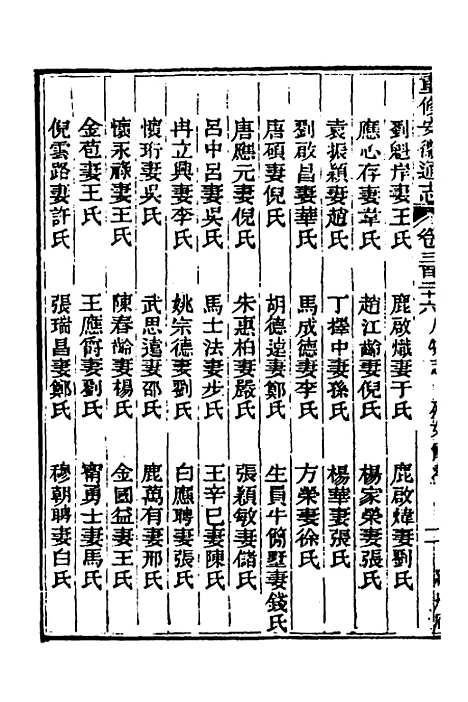 重修安徽通志 卷三百二十六 人物志
劉魁岸妻王氏 鹿啟熾妻于氏 鹿啟煒妻劉氏
應心存妻韋氏 趙江齡妻倪氏 楊家榮妻張氏
袁振穎妻趙氏 丁擇中妻孫氏 楊華妻張氏
劉啟昌妻華氏 馬成德妻李氏 方榮妻徐氏
唐碩妻倪氏 胡德遠妻鄭氏 生員牛簡墅妻錢氏
唐應元妻倪氏 朱惠柏妻嚴氏 張穎敏妻儲氏
呂中呂妻吳氏 馬士法妻步氏 王辛巳妻陳氏
冉立興妻李氏 姚宗德妻劉氏 白應聘妻張氏
懷珩妻吳氏 武思遠妻邵氏 鹿萬有妻邢氏
懷永祿妻王氏 陳春齡妻楊氏 金國益妻王氏
金苞妻王氏 王應爵妻劉氏 甯勇士妻馬氏
倪雲路妻許氏 張瑞昌妻鄭氏 穆朝聘妻白氏